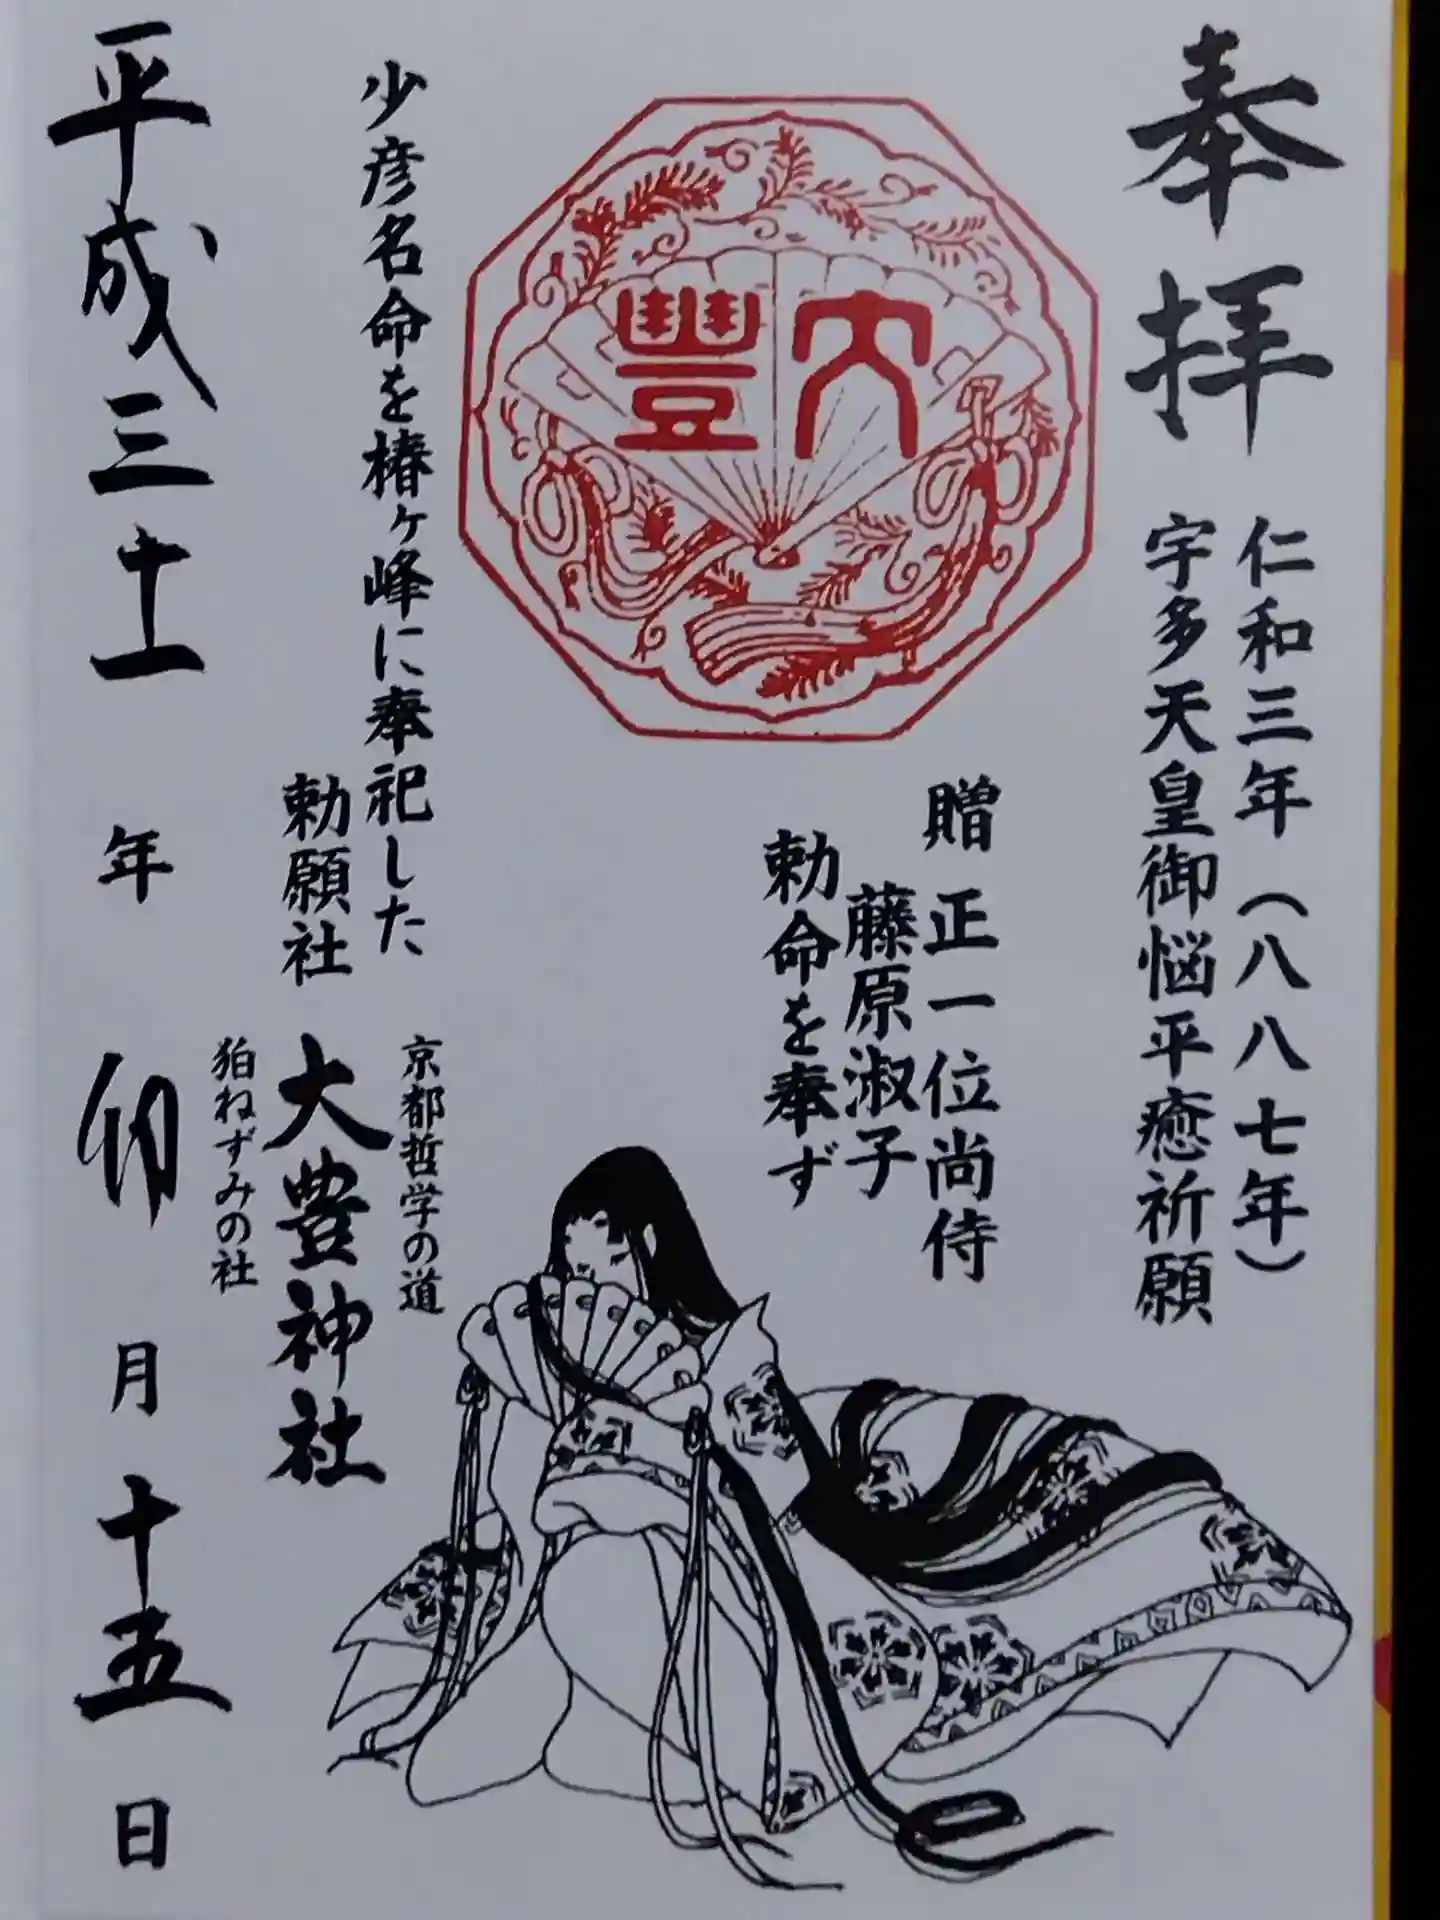 奉拝
仁和三年(八八七年)
宇多天皇御悩平癒祈願
大豐
贈 正一位尚侍
藤原淑子
勅命を奉ず
少彦名命を椿ヶ峰に奉祀した
勅願社
京都哲学の道
大豊神社
狛ねずみの社
平成三十一年 卯月十五日